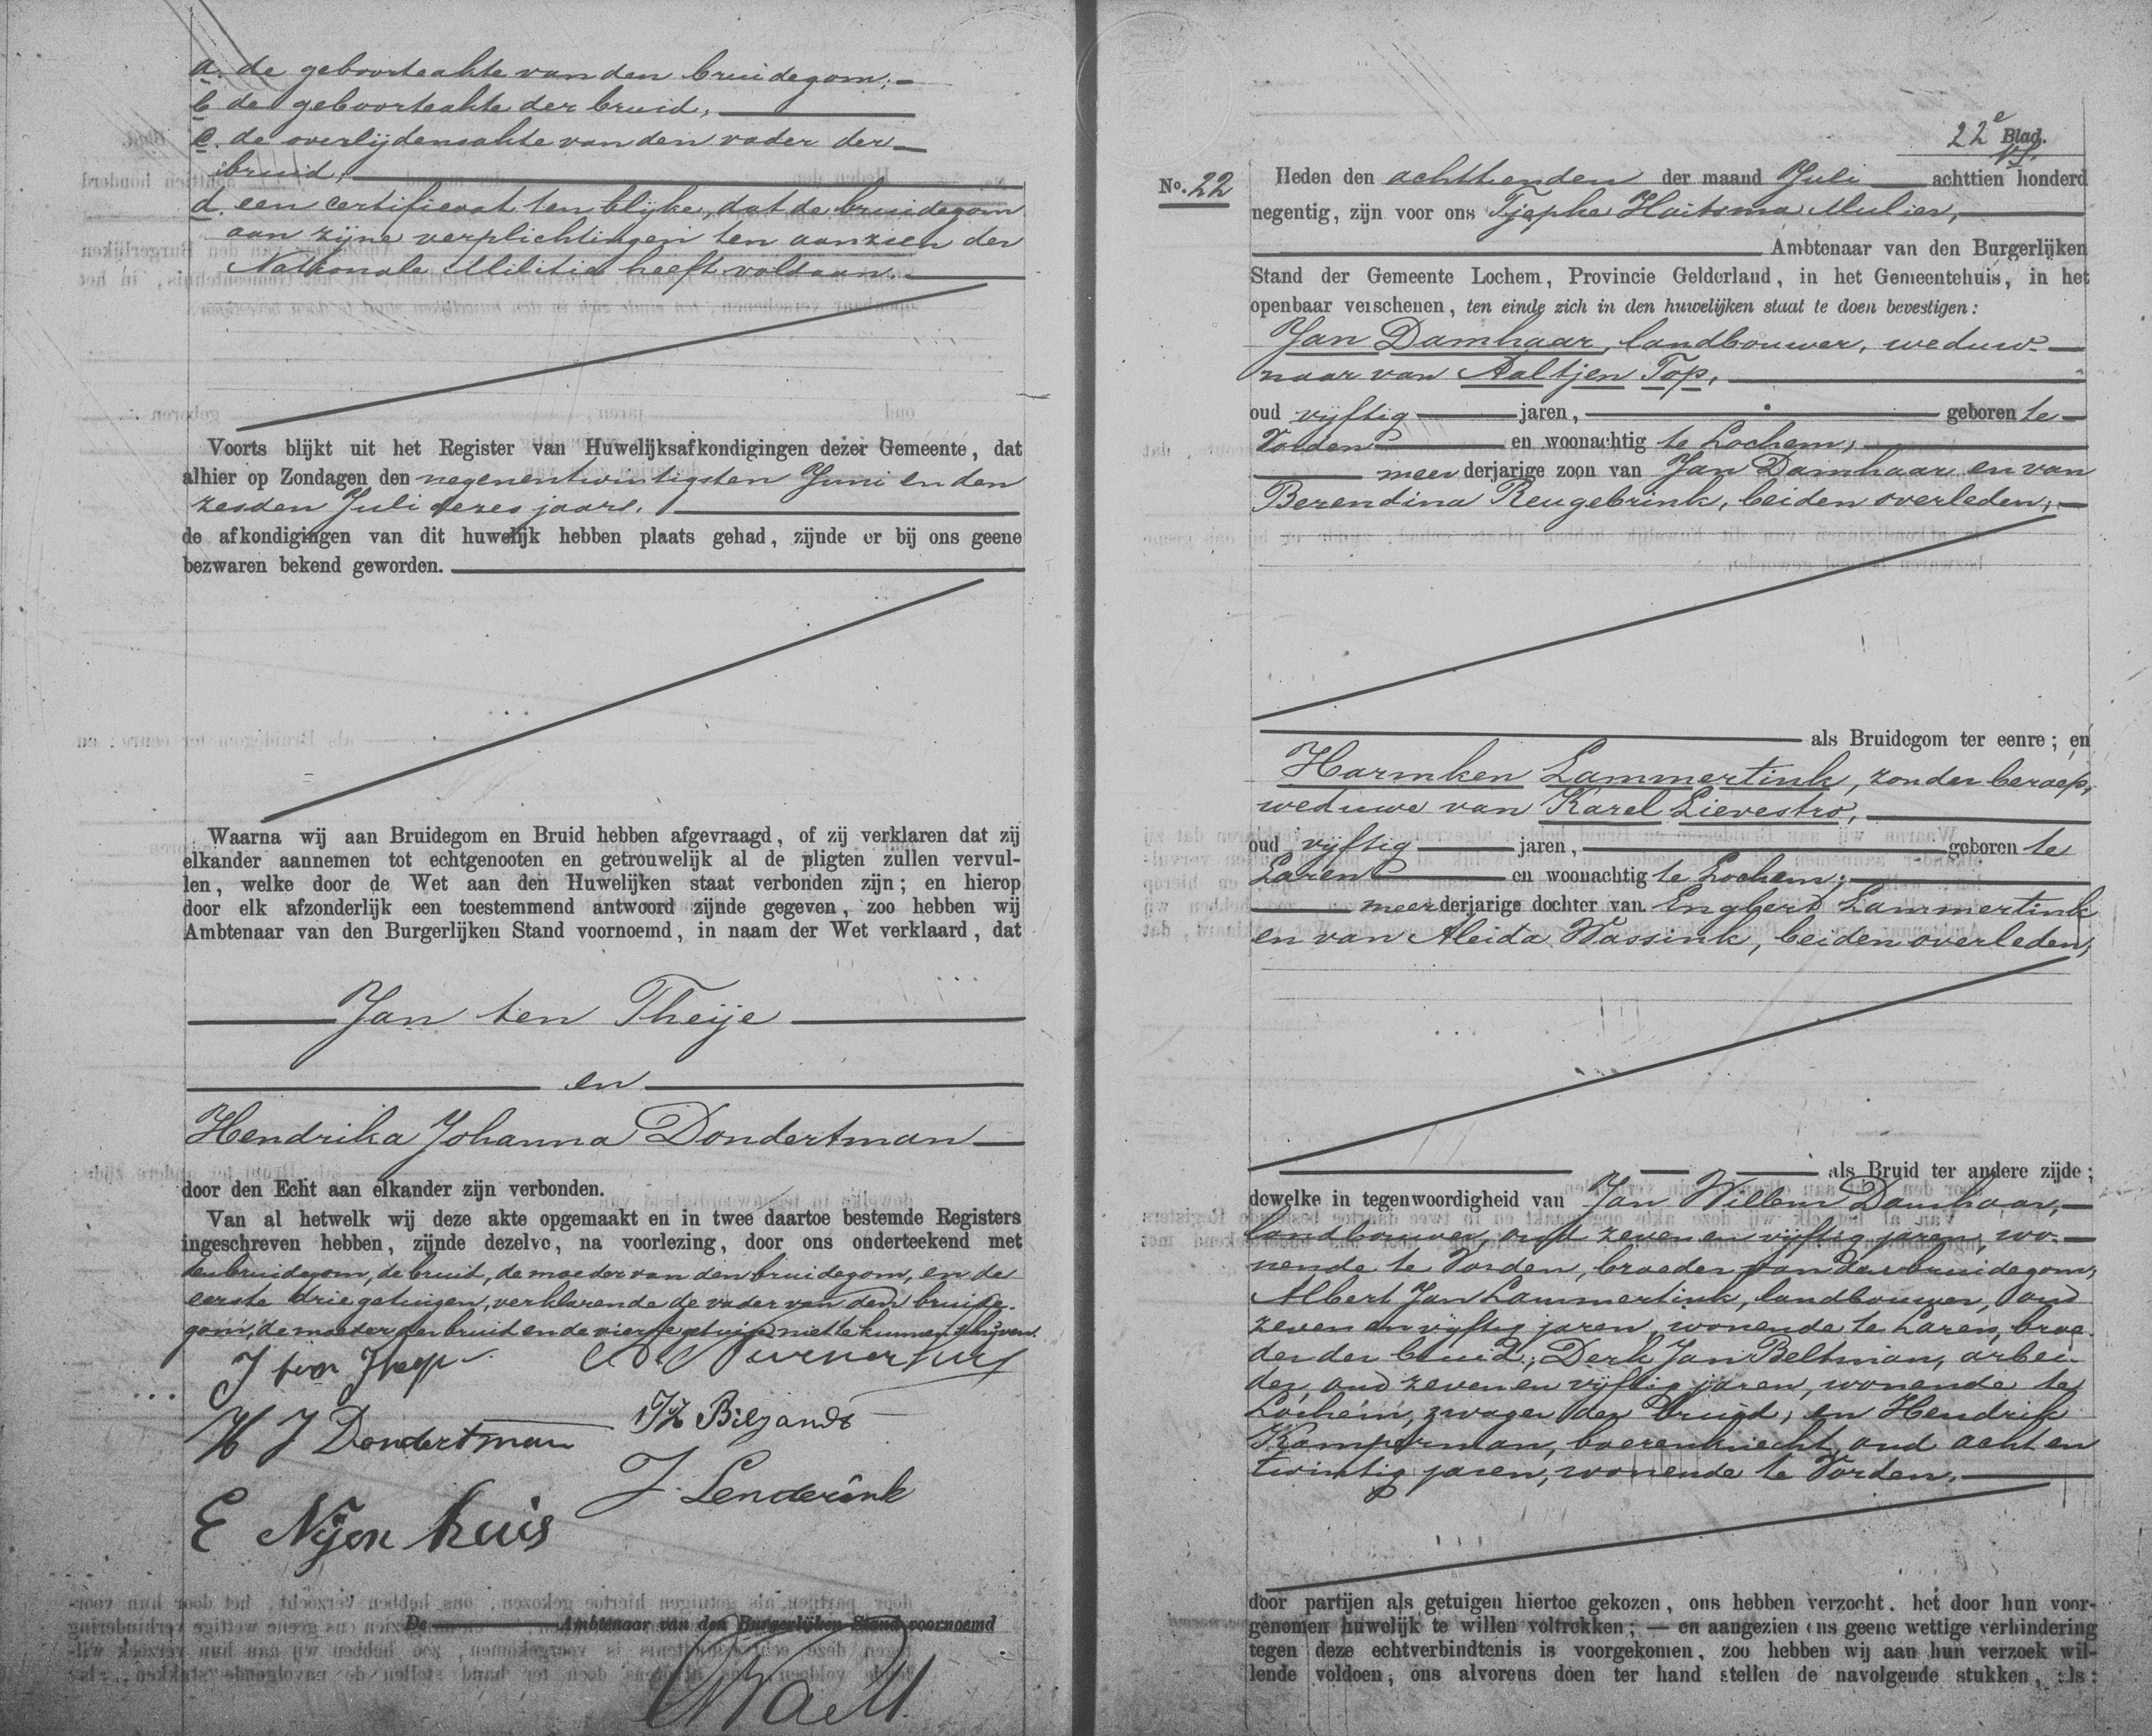 a. de geboorteakte van den bruidegom;
b de geboorteakte der bruid;
c. de overlijdensakte van den vader der
bruid;
d. een certificaat ten blijke, dat de bruidegom
aan zijne verplichtingen ten aanzien der
Nationale Militie heeft voldaan.
Voorts blijkt uit het Register van Huwelijksafkondigingen dezer Gemeente, dat
alhier op Zondagen den negenentwintigsten Juni en den
zesden Juli dezes jaars.
de afkondigingen van dit huwelijk hebben plaats gehad, zijnde er bij ons geene
bezwaren bekend geworden.
Waarna wij aan Bruidegom en Bruid hebben afgevraagd, of zij verklaren dat zij
elkander aannemen tot echtgenooten en getrouwelijk al de pligten zullen vervul-
len, welke door de Wet aan den Huwelijken staat verbonden zijn; en hierop
door elk afzonderlijk een toestemmend antwoord zijnde gegeven, zoo hebben wij
Ambtenaar van den Burgerlijken Stand voornoemd, in naam der Wet verklaard, dat
Jan ten Theije
en
Hendrika Johanna Dondertman
door den Echt aan elkander zijn verbonden.
Van al hetwelk wij deze akte opgemaakt en in twee daartoe bestemde Registers
ingeschreven hebben, zijnde dezelve, na voorlezing, door ons onderteekend met
den bruidegom, de bruid, de moeder van den bruidegom, en de
eerste drie getuigen, verklarende de vader van den bruide-
gom, de moeder der bruid en de vierde getuige niet te kunnen schrijven.
J ten
H J Dondertman
J Lenderink
E Nijenhuis
De Ambtenaar van den Burgerlijken Stand voornoemd
22e Blad.
No. 22
Heden den achttienden der maand Juli achttien honderd
negentig, zijn voor ons Tjepke Haitsma Mulier,
Ambtenaar van den Burgerlijken
Stand der Gemeente Lochem, Provincie Gelderland, in het Gemeentehuis, in het
openbaar verschenen, ten einde zich in den huwelijken staat te doen bevestigen:
Jan Damhaar, landbouwer, weduw-
naar van Aaltjen Top,
oud vijftig jaren, geboren te
Vorden en woonachtig te Lochem,
meerderjarige zoon van Jan Damhaar en van
Berendina Reugebrink, beiden overleden;
als Bruidegom ter eenre; en
Harmken Lammertink, zonder beroep,
weduwe van Karel Lievestro,
oud vijftig jaren, geboren te
Laren en woonachtig te Lochem;
meerderjarige dochter van Engbert Lammertink
en van Aleida Wassink, beiden overleden;
als Bruid ter andere zijde;
dewelke in tegenwoordigheid van Jan Willem Damhaar,
landbouwer, oud zevenenvijftig jaren, wo-
nende te Vorden, broeder van den bruidegom,
Albert Jan Lammertink, landbouwer, oud
zevenenvijftig jaren, wonende te Laren, broe-
der der bruid; Derk Jan Beltman, arbei-
der, oud zevenenvijftig jaren, wonende te
Lochem, zwager der bruid; en Hendrik
Kamperman, boerenknecht, oud achten
twintig jaren, wonende te Vorden,
door partijen als getuigen hiertoe gekozen, ons hebben verzocht, het door hun voor-
genomen huwelijk te willen voltrekken; — en aangezien ons geene wettige verhindering
tegen deze echtverbindtenis is voorgekomen, zoo hebben wij aan hun verzoek wil-
lende voldoen, ons alvorens doen ter hand stellen de navolgende stukken, als: